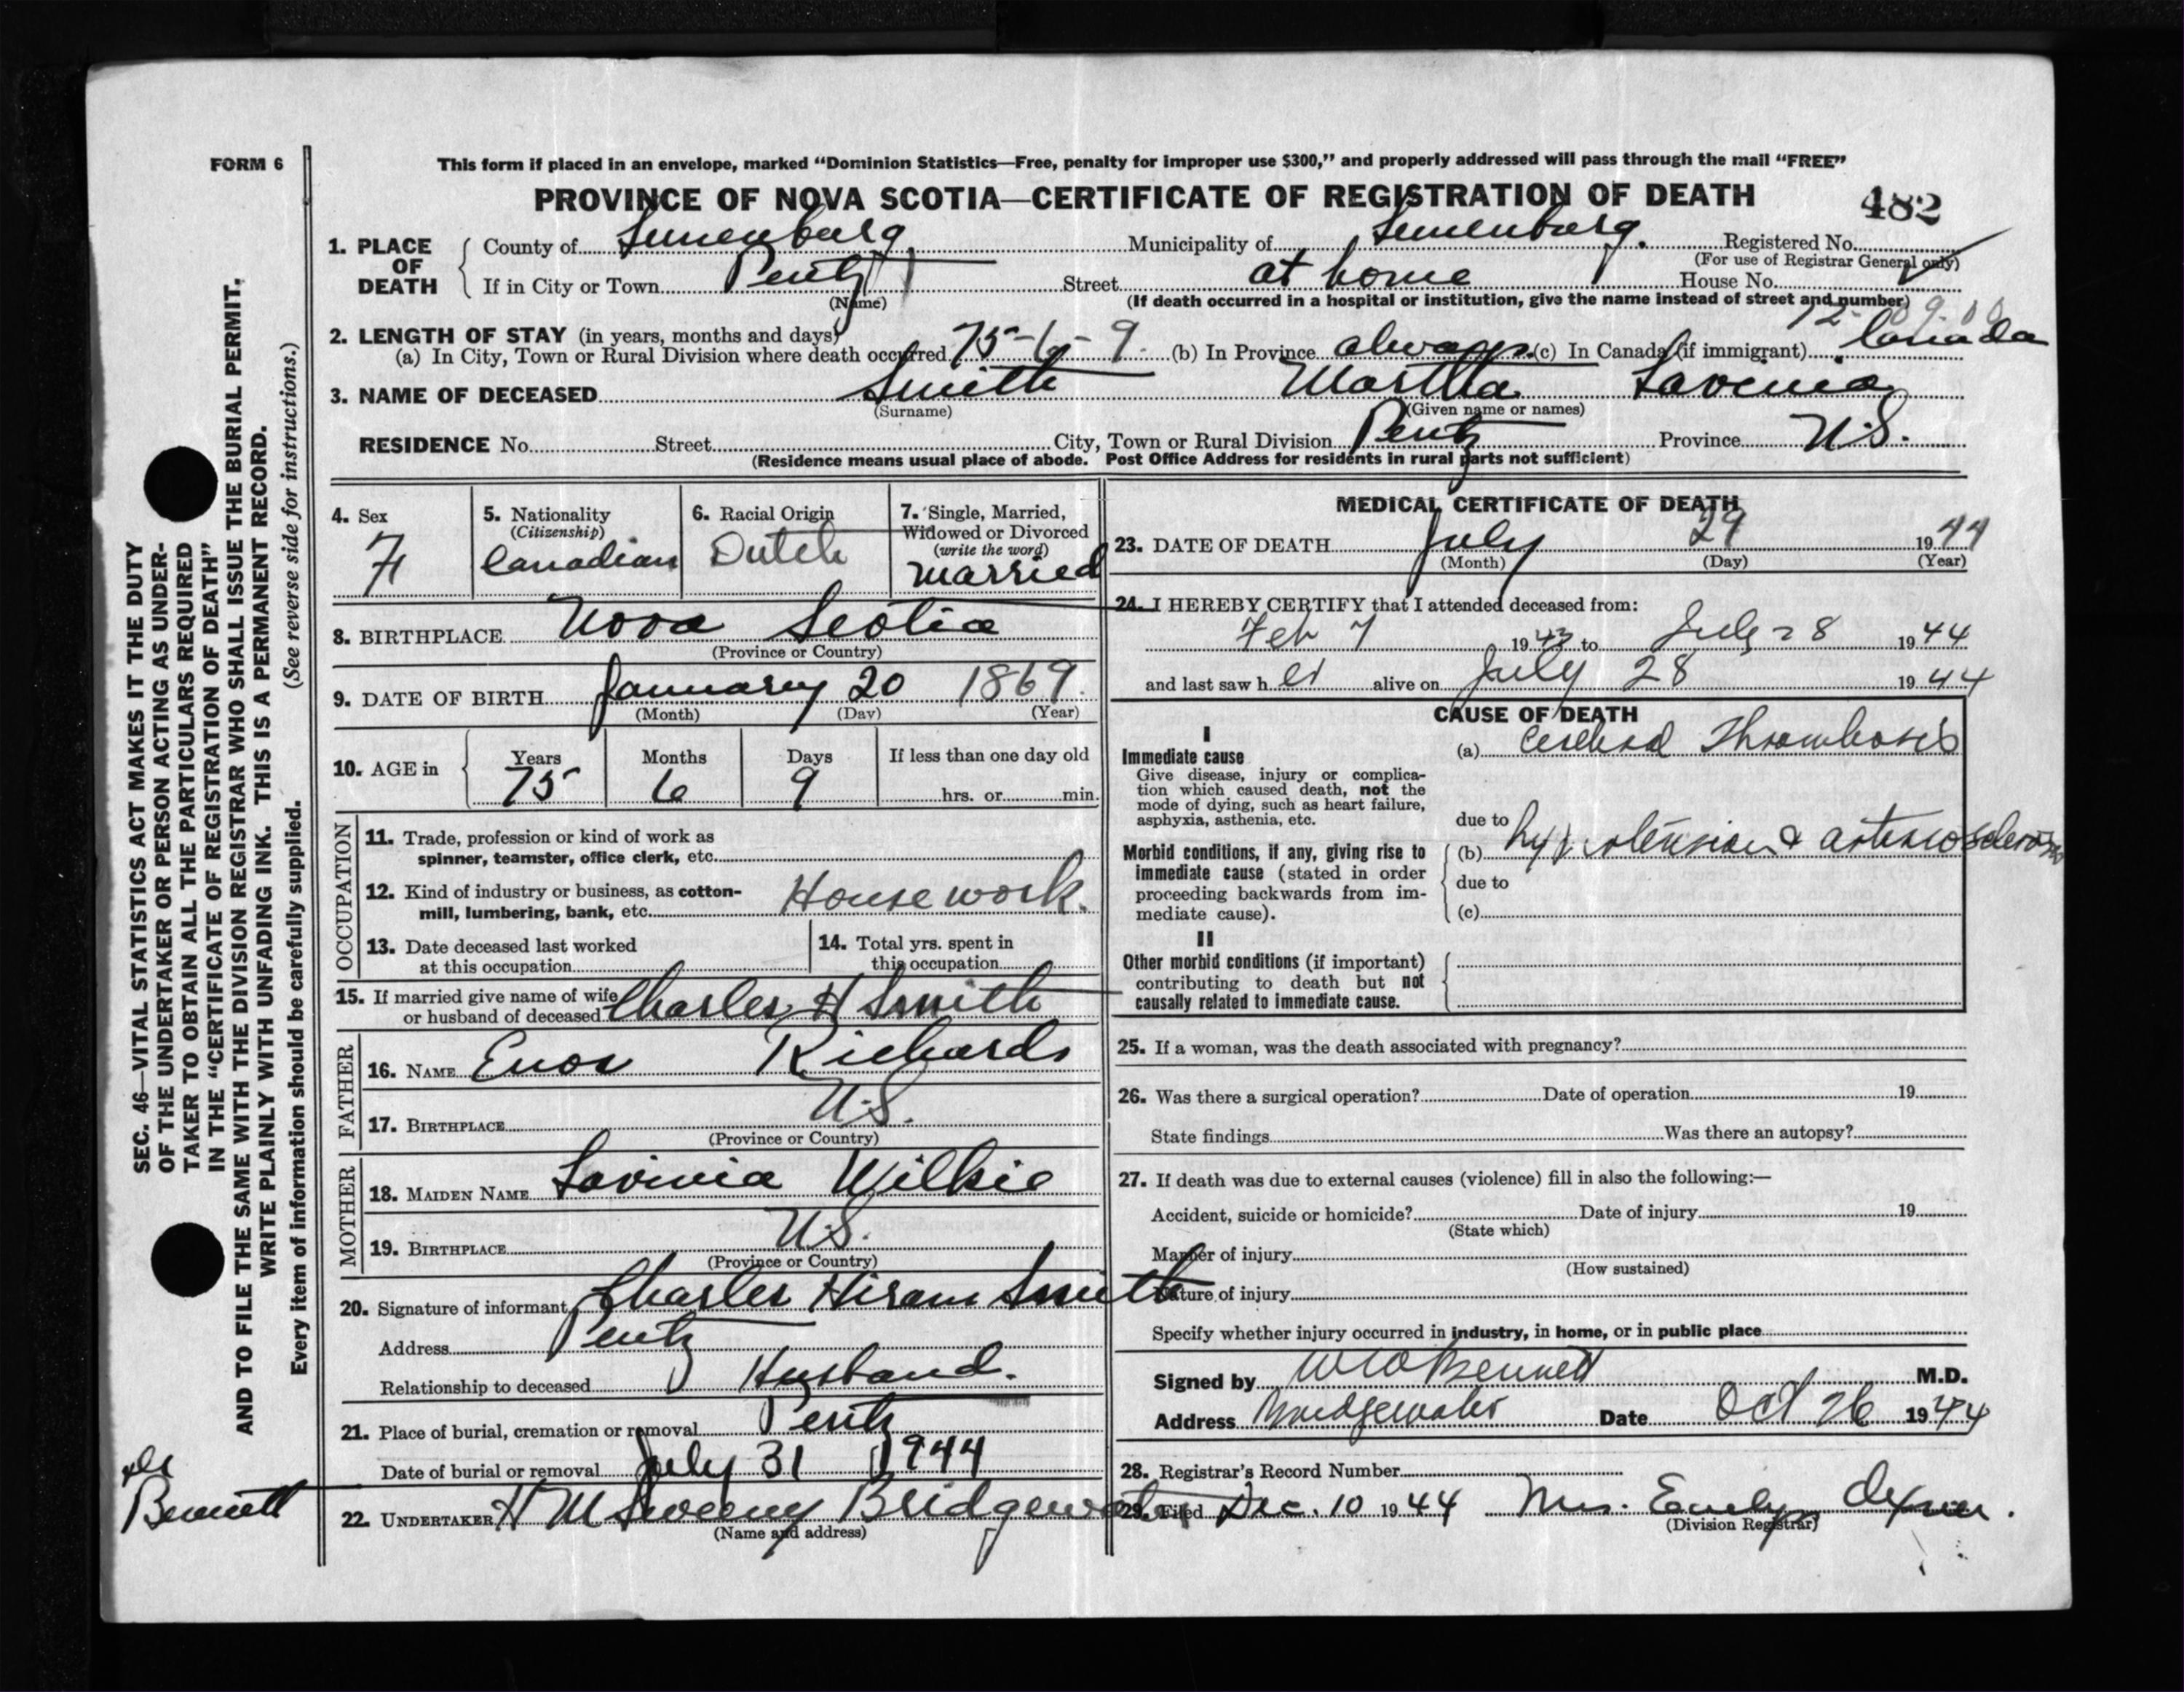 FORM 6
This form if placed in an envelope, marked “Dominion Statistics—Free, penalty for improper use $300,” and properly addressed will pass through the mail “FREE”
PROVINCE OF NOVA SCOTIA—CERTIFICATE OF REGISTRATION OF DEATH
482
1. PLACE OF DEATH
County of Lunenburg. Municipality of Lunenburg. Registered No.
(For use of Registrar General only)
If in City or Town Pentz Street at home House No.
(Name)
(If death occurred in a hospital or institution, give the name instead of street and number)
2. LENGTH OF STAY (in years, months and days)
(a) In City, Town or Rural Division where death occurred 75-6-9 (b) In Province always (c) In Canada (if immigrant) Canada
3. NAME OF DECEASED Smith Martha Lavenia
(Surname) (Given name or names)
RESIDENCE No. Street City, Town or Rural Division Pentz Province N.S.
(Residence means usual place of abode. Post Office Address for residents in rural parts not sufficient)
4. Sex
F
5. Nationality
(Citizenship)
Canadian
6. Racial Origin
Dutch
7. Single, Married,
Widowed or Divorced
(write the word)
married
8. BIRTHPLACE Nova Scotia
(Province or Country)
9. DATE OF BIRTH January 20 1869
(Month) (Day) (Year)
10. AGE in
Years Months Days If less than one day old
75 6 9 hrs. or min.
OCCUPATION
11. Trade, profession or kind of work as
spinner, teamster, office clerk, etc.
12. Kind of industry or business, as cotton-
mill, lumbering, bank, etc. House work.
13. Date deceased last worked
at this occupation
14. Total yrs. spent in
this occupation
15. If married give name of wife
or husband of deceased Charles H Smith
FATHER
16. NAME Enos Richards
17. BIRTHPLACE N.S.
(Province or Country)
MOTHER
18. MAIDEN NAME Lavinia Wilkie
19. BIRTHPLACE N.S.
(Province or Country)
20. Signature of informant Charles Hiram Smith
Address Pentz
Relationship to deceased Husband.
21. Place of burial, cremation or removal Pentz
Date of burial or removal July 31 1944
22. UNDERTAKER H M Sweeny Bridgewater
(Name and address)
MEDICAL CERTIFICATE OF DEATH
23. DATE OF DEATH July 29 1944
(Month) (Day) (Year)
24. I HEREBY CERTIFY that I attended deceased from:
Feb 7 1943 to July 28 1944
and last saw her alive on July 28 1944
CAUSE OF DEATH
I
Immediate cause
Give disease, injury or complica-
tion which caused death, not the
mode of dying, such as heart failure,
asphyxia, asthenia, etc.
(a) Cerebral Thrombosis
due to
Morbid conditions, if any, giving rise to
immediate cause (stated in order
proceeding backwards from im-
mediate cause).
(b) hypertension & arteriosclerosis
due to
(c)
II
Other morbid conditions (if important)
contributing to death but not
causally related to immediate cause.
25. If a woman, was the death associated with pregnancy?
26. Was there a surgical operation? Date of operation 19
State findings Was there an autopsy?
27. If death was due to external causes (violence) fill in also the following:—
Accident, suicide or homicide? Date of injury 19
(State which)
Manner of injury
(How sustained)
Nature of injury
Specify whether injury occurred in industry, in home, or in public place
Signed by W O Bennett M.D.
Address Bridgewater Date Oct 26 1944
28. Registrar's Record Number
29. Filed Dec. 10 1944 Mrs. Evelyn Dexter.
(Division Registrar)
SEC. 46—VITAL STATISTICS ACT MAKES IT THE DUTY
OF THE UNDERTAKER OR PERSON ACTING AS UNDER-
TAKER TO OBTAIN ALL THE PARTICULARS REQUIRED
IN THE “CERTIFICATE OF REGISTRATION OF DEATH”
AND TO FILE THE SAME WITH THE DIVISION REGISTRAR WHO SHALL ISSUE THE BURIAL PERMIT.
WRITE PLAINLY WITH UNFADING INK. THIS IS A PERMANENT RECORD.
Every item of information should be carefully supplied. (See reverse side for instructions.)
Dr
Bennett